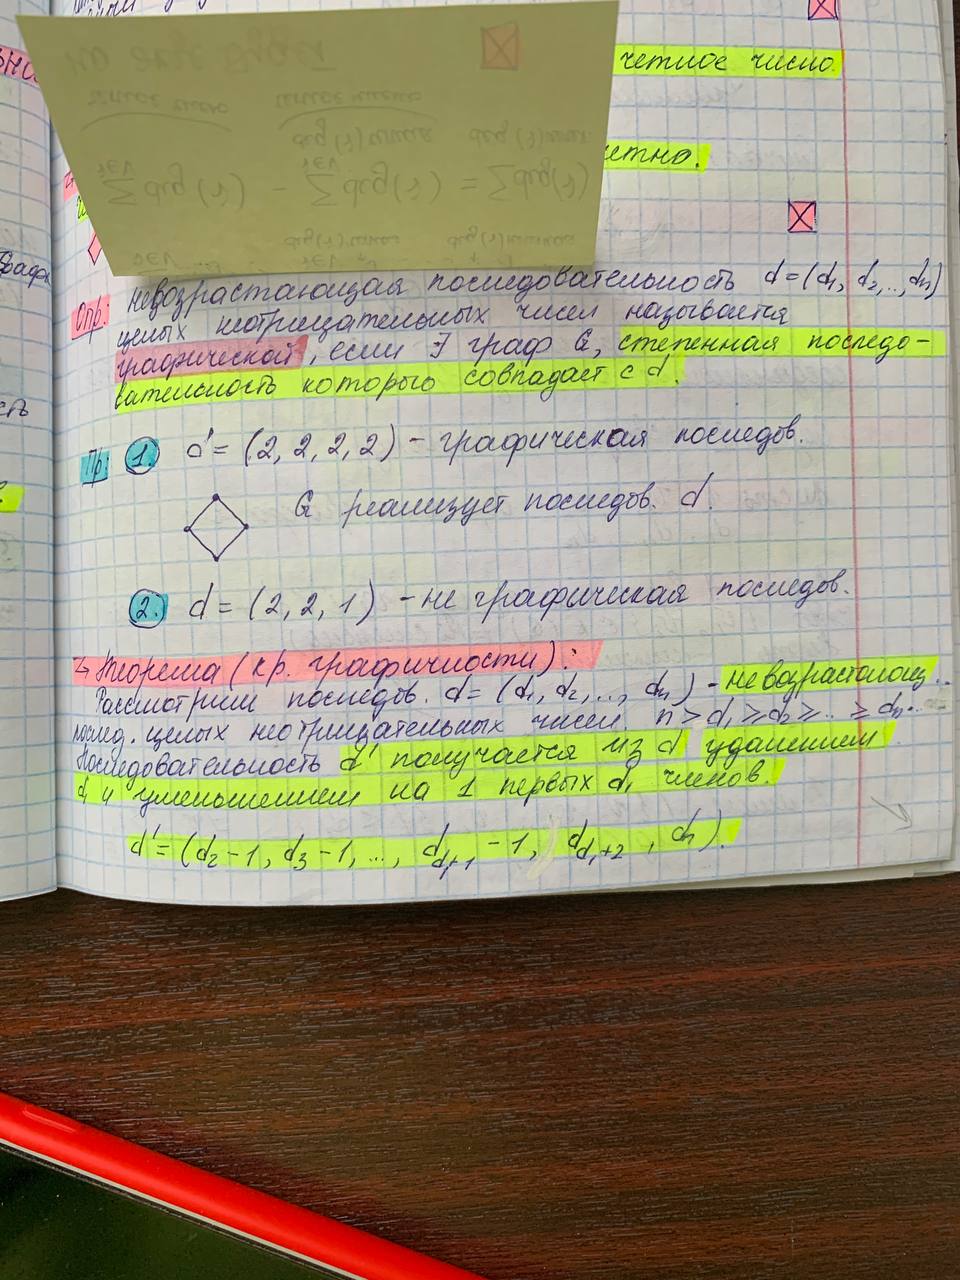 четное число.
етно.
Опр: невозрастающая последовательность d = (d₁, d₂, .., dₙ)
целых неотрицательных чисел называется
графической, если ∃ граф G, степенная последо-
вательность которого совпадает с d.
Пр: 1. d = (2, 2, 2, 2) – графическая последов.
G реализует последов. d.
2. d = (2, 2, 1) – не графическая последов.
↳ Теорема (кр. графичности):
Рассмотрим последов. d = (d₁, d₂, ..., dₙ) – невозрастающ..
послед. целых неотрицательных чисел n > d₁ ⩾ d₂ ⩾ .. ⩾ dₙ..
Последовательность d' получается из d удалением
d₁ и уменьшением на 1 первых d₁ членов.
d' = (d₂-1, d₃-1, ..., d_{d₁+1} - 1, d_{d₁+2}, dₙ).